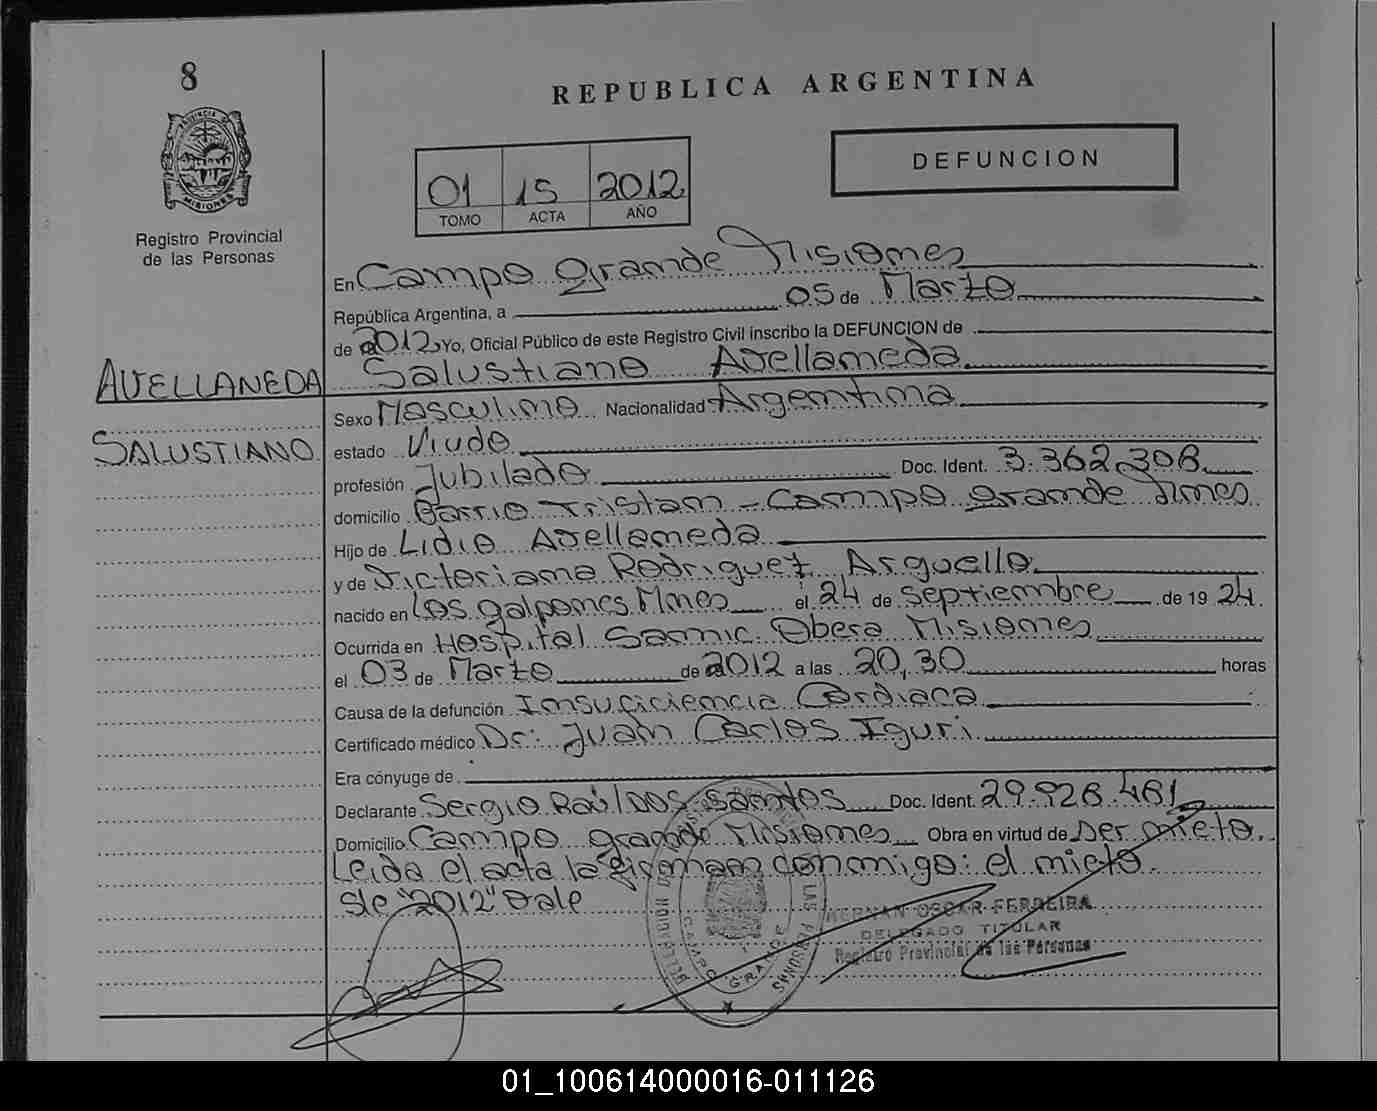 8
PROVINCIA DE
MISIONES
Registro Provincial
de las Personas
AVELLANEDA
SALUSTIANO
REPUBLICA ARGENTINA
01 15 2012
TOMO ACTA AÑO
DEFUNCION
En Campo Grande Misiones
República Argentina, a 05 de Marzo
de 2012 Yo, Oficial Público de este Registro Civil inscribo la DEFUNCION de
Salustiano Avellaneda
Sexo Masculino Nacionalidad Argentina
estado Viudo
profesión Jubilado Doc. Ident. 3.362.308
domicilio Barrio Tristan - Campo Grande Mnes
Hijo de Lidio Avellaneda
y de Victoriana Rodriguez Arguello
nacido en Los galpones Mnes el 24 de septiembre de 1924
Ocurrida en Hospital Samic. Obera Misiones
el 03 de Marzo de 2012 a las 20,30 horas
Causa de la defunción Insuficiencia Cardiaca
Certificado médico Dr: Juan Carlos Iguri
Era cónyuge de
Declarante Sergio Raúl Dos Santos Doc. Ident. 29.928.481
Domicilio Campo grande Misiones Obra en virtud de Ser nieto.
Leida el acta la firman conmigo: el nieto
S/e "2012" Vale
CAMPO GRANDE
LAS PERSONAS
HERNAN OSCAR FERREIRA
DELEGADO TITULAR
Registro Provincial de las Personas
01_100614000016-011126